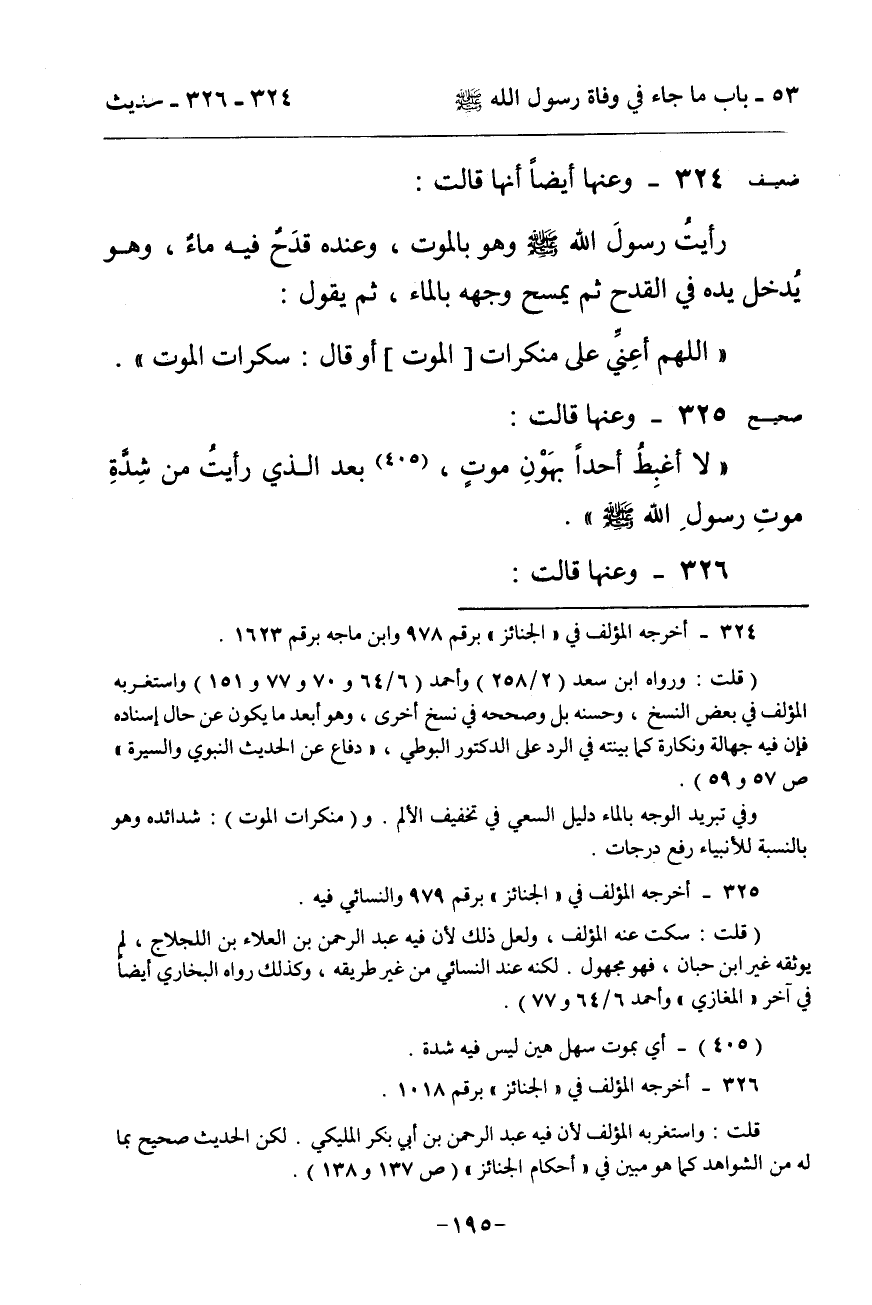 ٥٣ - باب ما جاء في وفاة رسول الله ﷺ ٣٢٤ - ٣٢٦ - حديث
ضعيف ٣٢٤ - وعنها أيضاً أنها قالت :
رأيتُ رسولَ الله ﷺ وهو بالموت ، وعنده قدَحٌ فيه ماءٌ ، وهو
يُدخل يده في القدح ثم يمسح وجهه بالماء ، ثم يقول :
« اللهم أعِنِّي على منكرات [ الموت ] أو قال : سكرات الموت » .
صحيح ٣٢٥ - وعنها قالت :
« لا أغبِطُ أحداً بهَوْنِ موتٍ ، (٤٠٥) بعد الذي رأيتُ من شِدَّةِ
موتِ رسولِ الله ﷺ » .
٣٢٦ - وعنها قالت :
٣٢٤ - أخرجه المؤلف في « الجنائز » برقم ٩٧٨ وابن ماجه برقم ١٦٢٣ .
( قلت : ورواه ابن سعد ( ٢٥٨/٢ ) وأحمد ( ٦٤/٦ و ٧٠ و ٧٧ و ١٥١ ) واستغربه
المؤلف في بعض النسخ ، وحسنه بل وصححه في نسخ أخرى ، وهو أبعد ما يكون عن حال إسناده
فإن فيه جهالة ونكارة كما بينته في الرد على الدكتور البوطي ، « دفاع عن الحديث النبوي والسيرة »
ص ٥٧ و ٥٩ ) .
وفي تبريد الوجه بالماء دليل السعي في تخفيف الألم . و ( منكرات الموت ) : شدائده وهو
بالنسبة للأنبياء رفع درجات .
٣٢٥ - أخرجه المؤلف في « الجنائز » برقم ٩٧٩ والنسائي فيه .
( قلت : سكت عنه المؤلف ، ولعل ذلك لأن فيه عبد الرحمن بن العلاء بن اللجلاج ، لم
يوثقه غير ابن حبان ، فهو مجهول . لكنه عند النسائي من غير طريقه ، وكذلك رواه البخاري أيضاً
في آخر « المغازي » وأحمد ٦٤/٦ و ٧٧ ) .
( ٤٠٥ ) - أي بموت سهل هين ليس فيه شدة .
٣٢٦ - أخرجه المؤلف في « الجنائز » برقم ١٠١٨ .
قلت : واستغربه المؤلف لأن فيه عبد الرحمن بن أبي بكر المليكي . لكن الحديث صحيح بما
له من الشواهد كما هو مبين في « أحكام الجنائز » ( ص ١٣٧ و ١٣٨ ) .
-١٩٥-